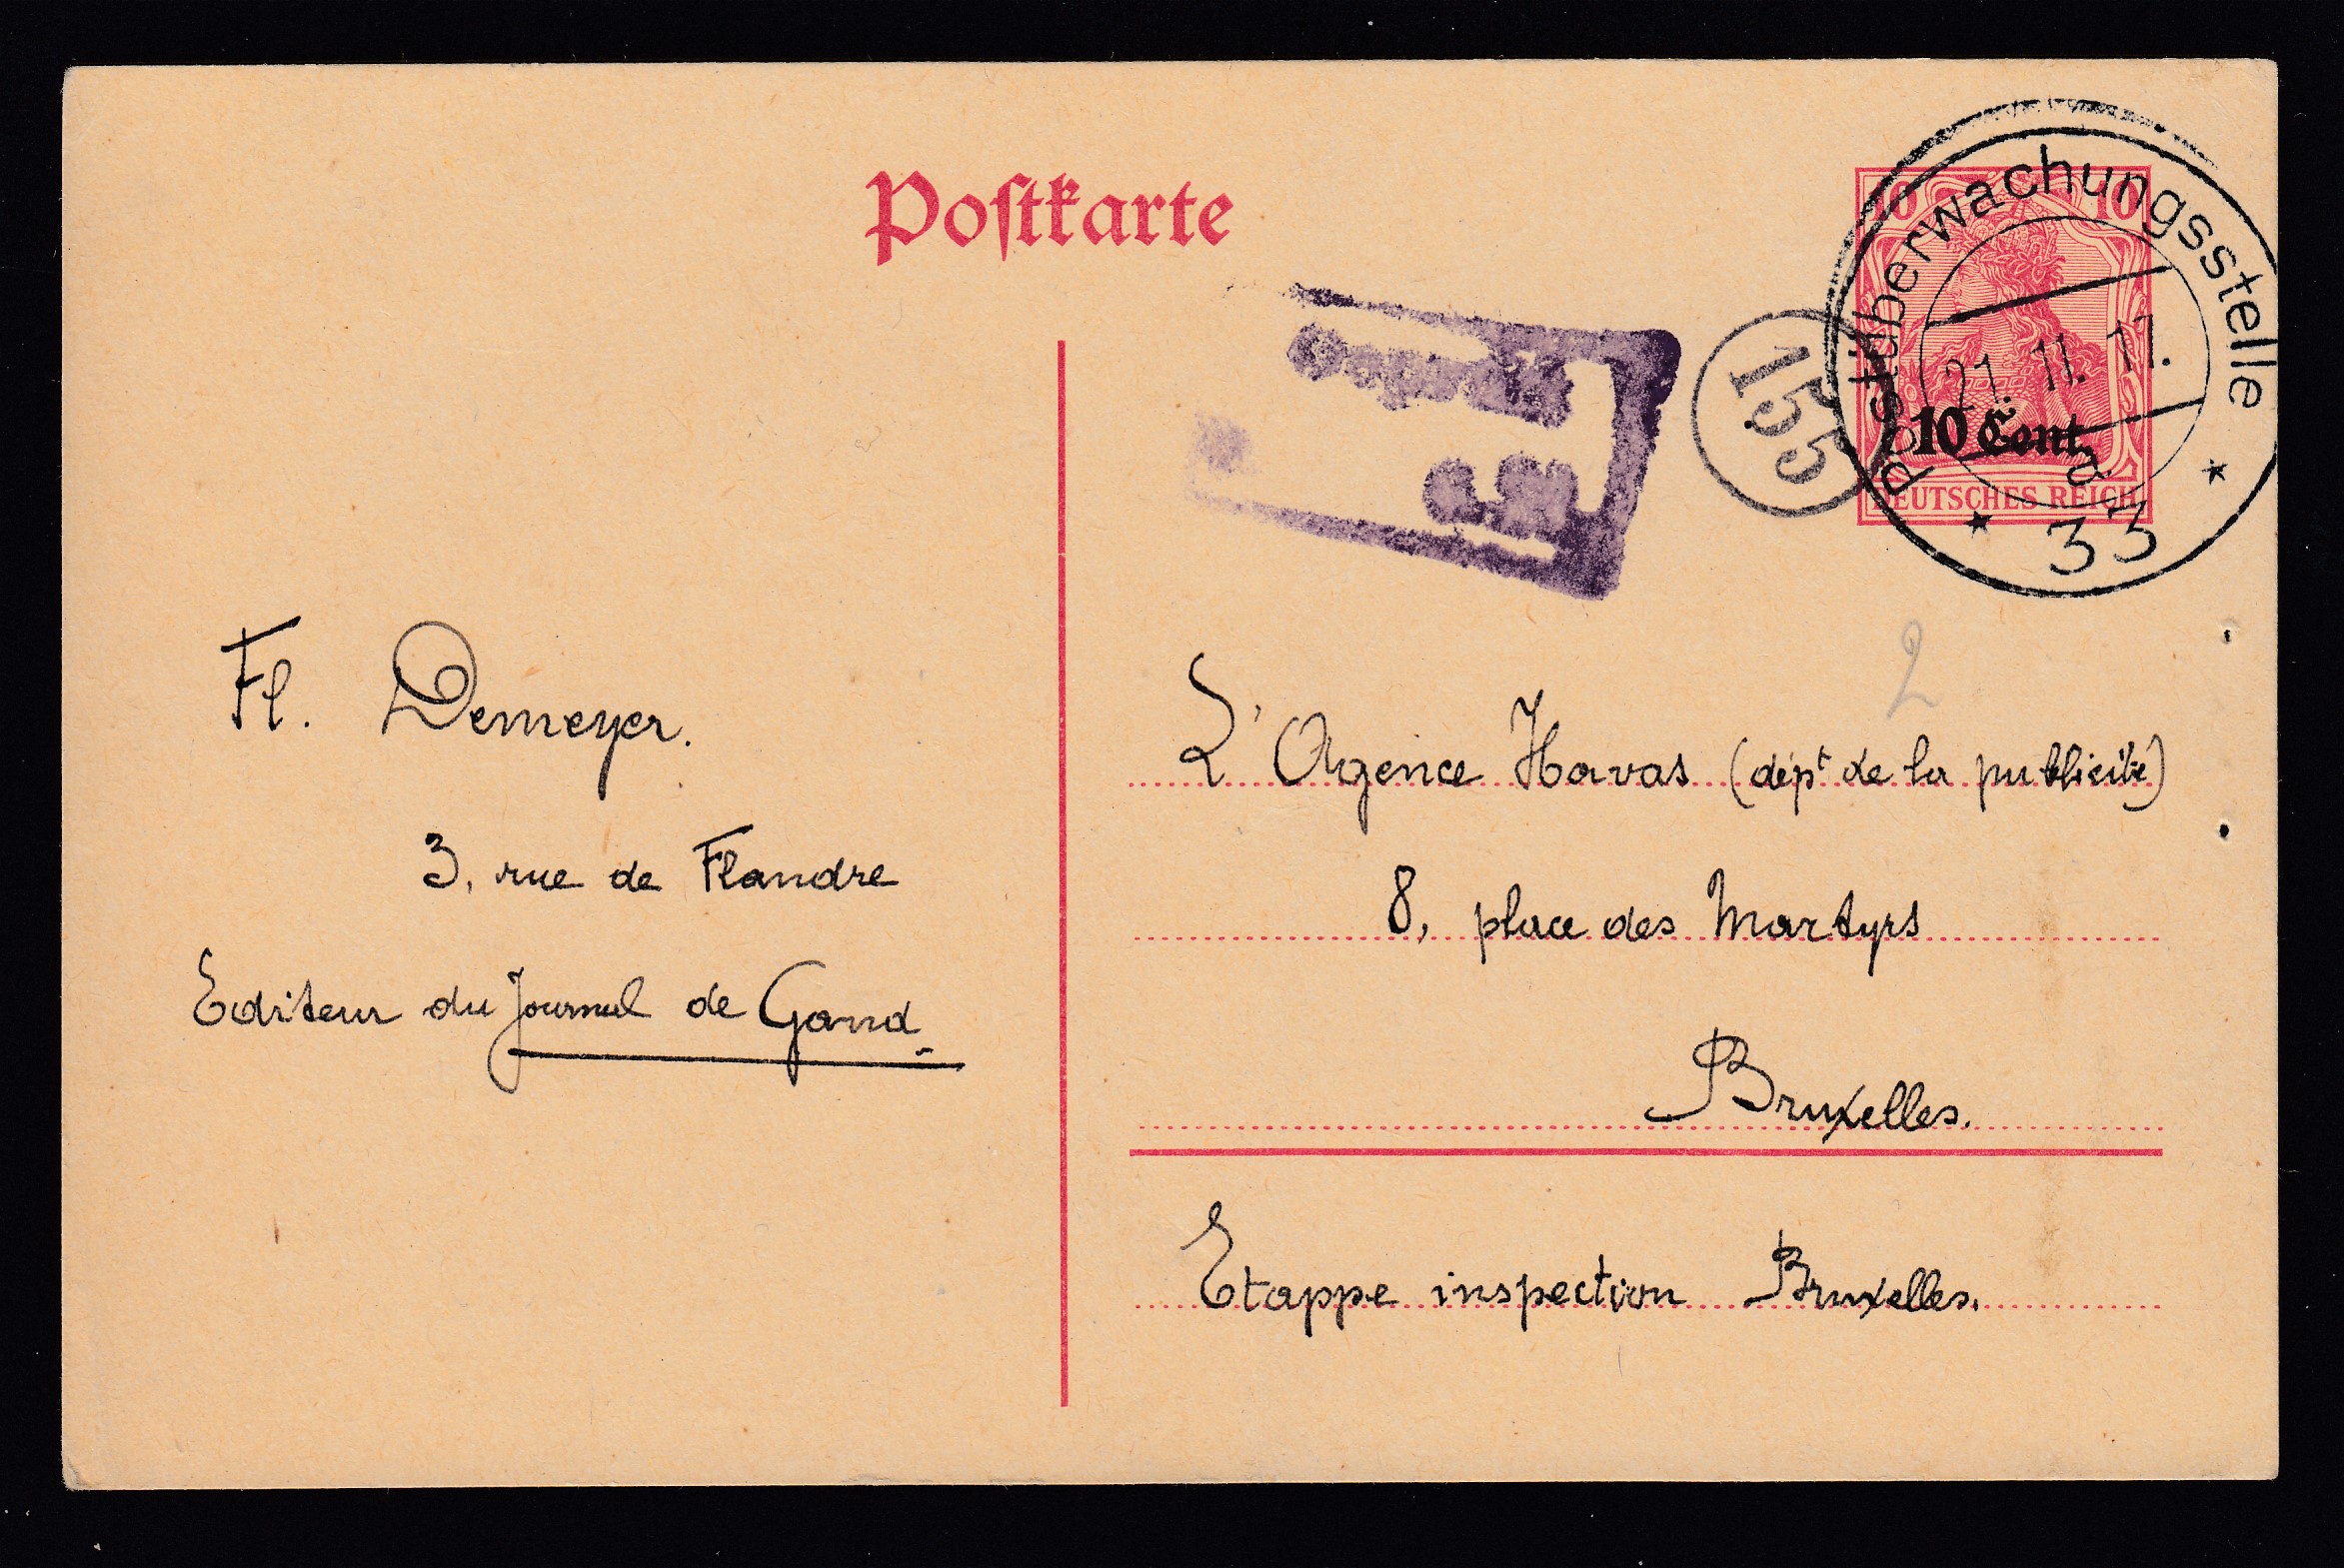 Postkarte
10 10
10 Cent.
DEUTSCHES REICH
Postüberwachungsstelle
21. 11. 17.
a
* 33 *
155
2
Fl. Demeyer.
3, rue de Flandre
Editeur du Journal de Gand.
L'Agence Havas (dépt de la publicité)
8, place des Martyrs
Bruxelles.
Etappe inspection Bruxelles.